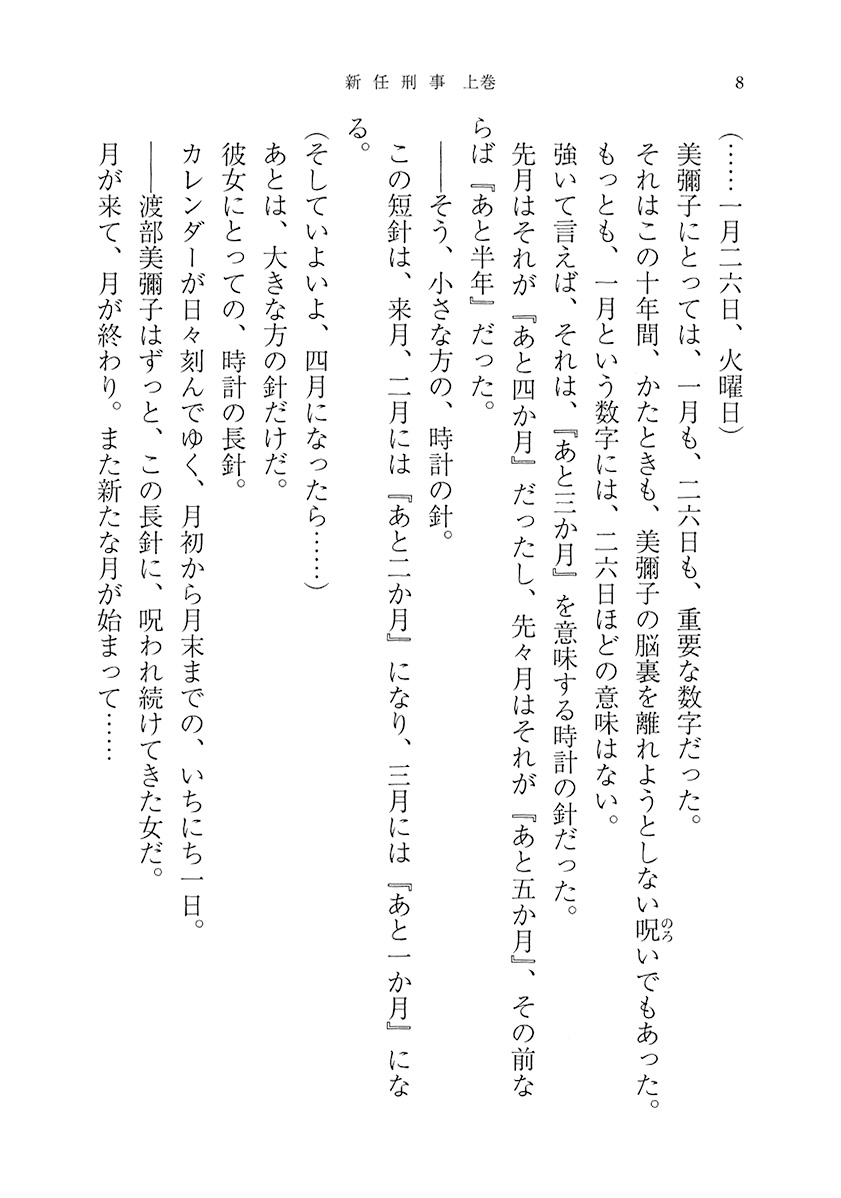 新任刑事 上巻
8
(……一月二六日、火曜日)
美彌子にとっては、一月も、二六日も、重要な数字だった。
それはこの十年間、かたときも、美彌子の脳裏を離れようとしない呪いでもあった。
のろ
もっとも、一月という数字には、二六日ほどの意味はない。
強いて言えば、それは、『あと三か月』を意味する時計の針だった。
先月はそれが『あと四か月』だったし、先々月はそれが『あと五か月』、その前な
らば『あと半年』だった。
――そう、小さな方の、時計の針。
この短針は、来月、二月には『あと二か月』になり、三月には『あと一か月』にな
る。
(そしていよいよ、四月になったら……)
あとは、大きな方の針だけだ。
彼女にとっての、時計の長針。
カレンダーが日々刻んでゆく、月初から月末までの、いちにち一日。
――渡部美彌子はずっと、この長針に、呪われ続けてきた女だ。
月が来て、月が終わり。また新たな月が始まって……